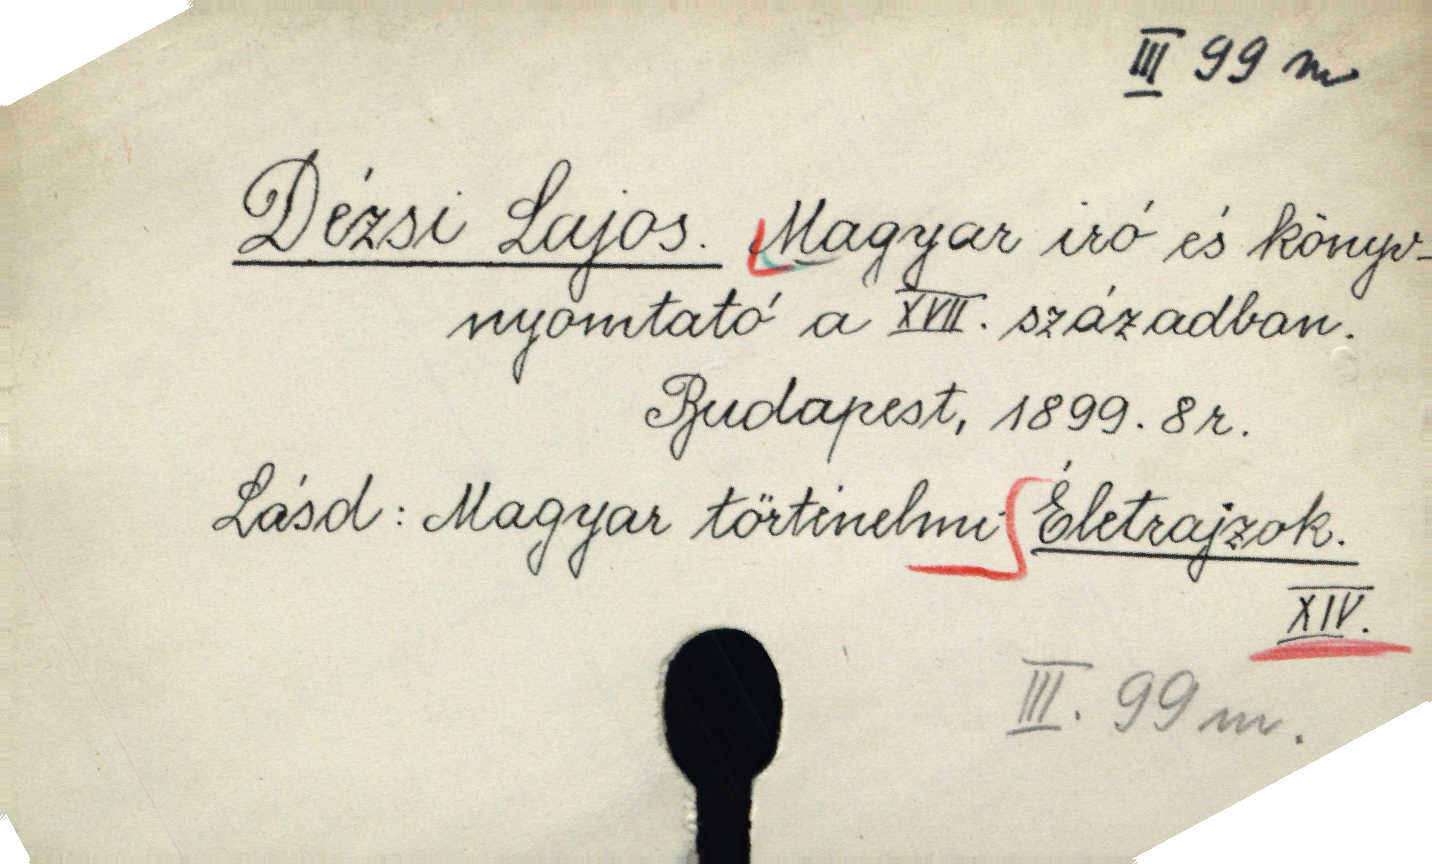 III 99 m
Dézsi Lajos. Magyar iró és könyv-
nyomtató a XVII. században.
Budapest, 1899. 8r.
Lásd: Magyar törtinelmi Életrajzok.
XIV.
III. 99 m.